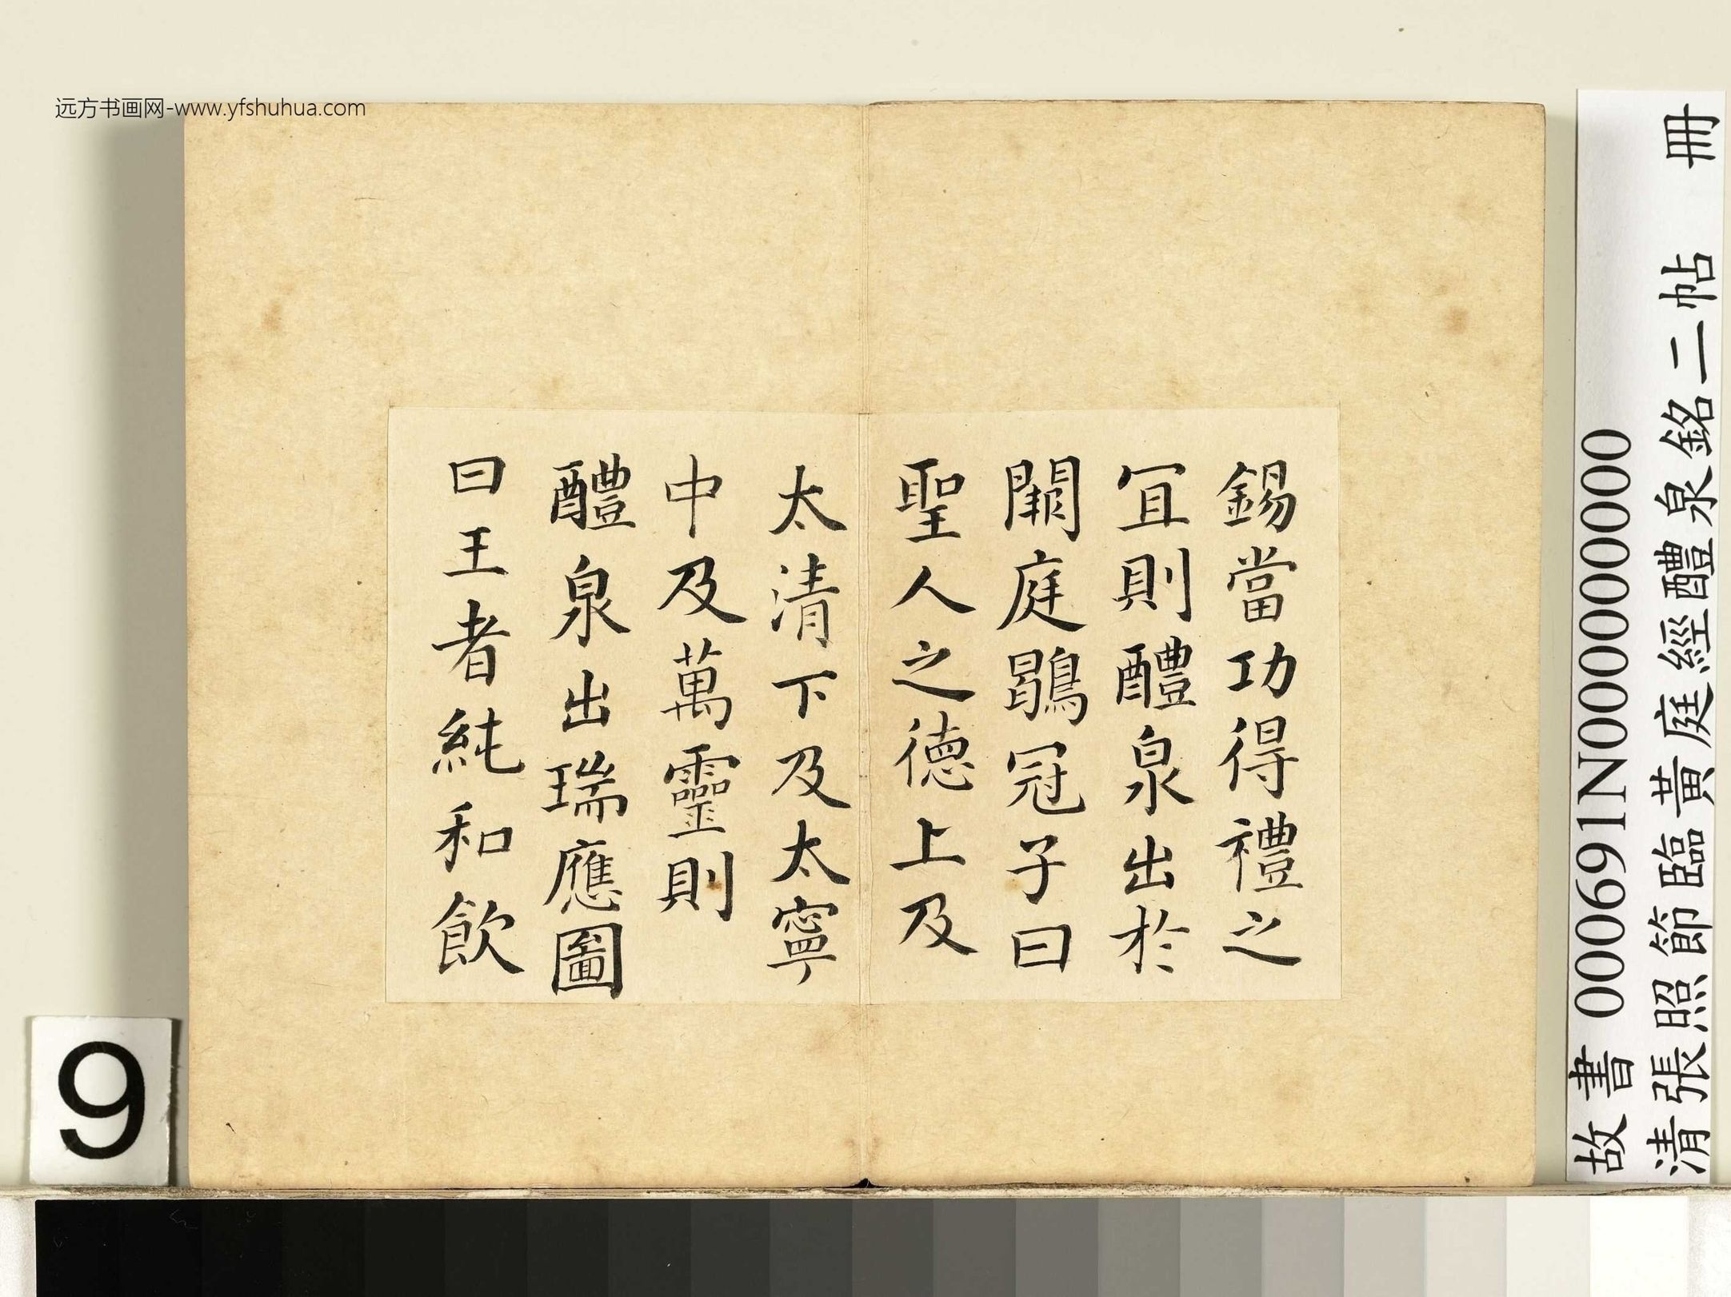 远方书画网-www.yfshuhua.com
錫當功得禮之
冝則醴泉出於
闕庭鶡冠子曰
聖人之德上及
太清下及太寧
中及萬靈則
醴泉出瑞應圖
曰王者純和飲
故書 000691N000000000
清張照節臨黃庭經醴泉銘二帖 冊
9